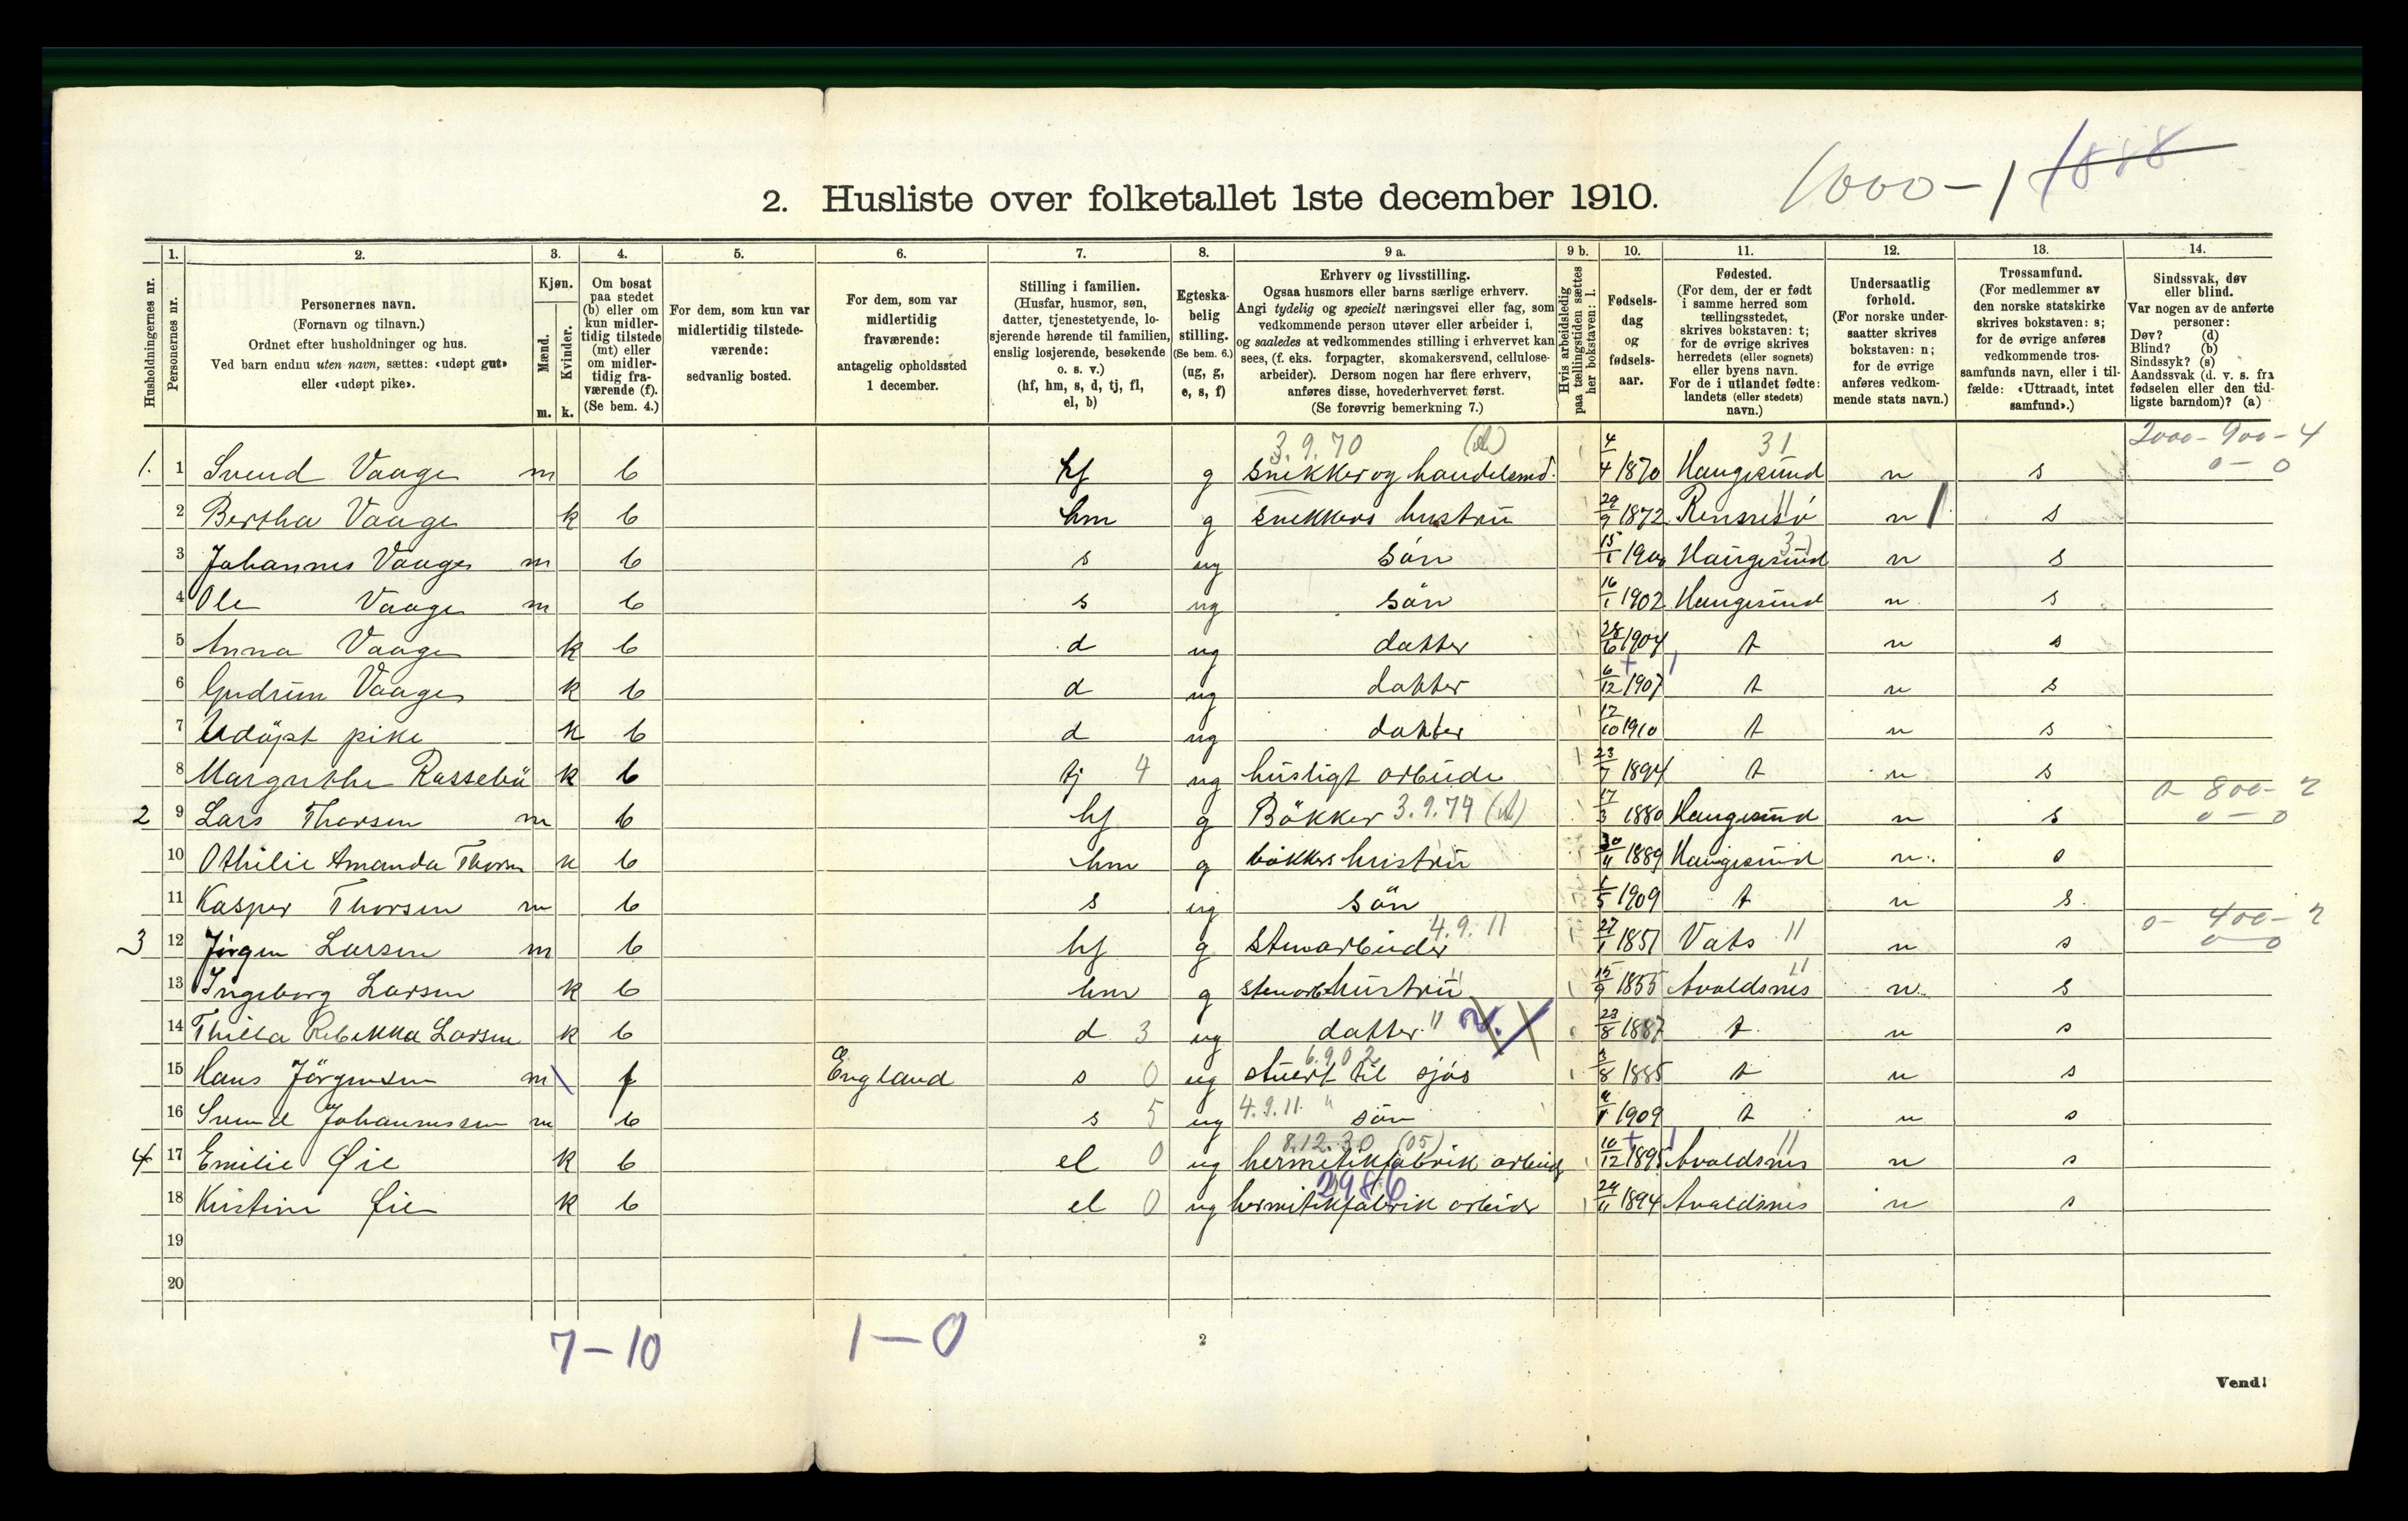 1000-1 1888
2. Husliste over folketallet 1ste december 1910.
Husholdningernes nr.
1. Personernes nr.
2. Personernes navn. (Fornavn og tilnavn.) Ordnet efter husholdninger og hus. Ved barn endnu uten navn, sættes: «udøpt gut» eller «udøpt pike».
3. Kjøn. Mænd. m. Kvinder. k.
4. Om bosat paa stedet (b) eller om kun midlertidig tilstede (mt) eller om midlertidig fraværende (f). (Se bem. 4.)
5. For dem, som kun var midlertidig tilstedeværende: sedvanlig bosted.
6. For dem, som var midlertidig fraværende: antagelig opholdssted 1 december.
7. Stilling i familien. (Husfar, husmor, søn, datter, tjenestetyende, losjerende hørende til familien, enslig losjerende, besøkende o. s. v.) (hf, hm, s, d, tj, fl, el, b)
8. Egteskabelig stilling. (Se bem. 6.) (ug, g, e, s, f)
9 a. Erhverv og livsstilling. Ogsaa husmors eller barns særlige erhverv. Angi tydelig og specielt næringsvei eller fag, som vedkommende person utøver eller arbeider i, og saaledes at vedkommendes stilling i erhvervet kan sees, (f. eks. forpagter, skomakersvend, cellulosearbeider). Dersom nogen har flere erhverv, anføres disse, hovederhvervet først. (Se forøvrig bemerkning 7.)
9 b. Hvis arbeidsledig paa tællingstiden sættes her bokstaven: l.
10. Fødselsdag og fødselsaar.
11. Fødested. (For dem, der er født i samme herred som tællingsstedet, skrives bokstaven: t; for de øvrige skrives herredets (eller sognets) eller byens navn. For de i utlandet fødte: landets (eller stedets) navn.)
12. Undersaatlig forhold. (For norske undersaatter skrives bokstaven: n; for de øvrige anføres vedkommende stats navn.)
13. Trossamfund. (For medlemmer av den norske statskirke skrives bokstaven: s; for de øvrige anføres vedkommende trossamfunds navn, eller i tilfælde: «Uttraadt, intet samfund».)
14. Sindssvak, døv eller blind. Var nogen av de anførte personer: Døv? (d) Blind? (b) Sindssyk? (s) Aandssvak (d. v. s. fra fødselen eller den tidligste barndom)? (a)
3.9.70 31 2000-900-4
1. 1 Svend Vaage m b hf g snekker og handelsmd. 4/4 1870 Haugesund n s 0-0
2 Bertha Vaage k b hm g snekkers hustru 29/9 1872 Rennesö n s
3 Johannes Vaage m b s ug sön 15/1 1900 Haugesund n s
4 Ole Vaage m b s ug sön 16/1 1902 Haugesund n s
5 Anna Vaage k b d ug datter 28/6 1904 t n s
6 Gudrun Vaage k b d ug datter 6/12 1907 t n s
7 Udöpt pike k b d ug datter 17/10 1910 t n s
8 Margrethe Rassebü k b tj 4 ug husligt arbeide 23/7 1894 t n s
0-800-2
2 9 Lars Thorsen m b hf g Bökker 3.9.74 17/3 1880 Haugesund n s 0-0
10 Othilie Amanda Thorsn k b hm g bökkers hustru 30/4 1889 Haugesund n s
11 Kasper Thorsen m b s ug sön 1/5 1909 t n s
4.9.11 0-400-2
3 12 Jörgen Larsen m b hf g stenarbeider 27/1 1851 Vats 11 n s 0-0
13 Ingeborg Larsen k b hm g stenarb hustru 15/9 1855 Avaldsnes n s
14 Thilla Rebekka Larsen k b d 3 ug datter 23/8 1887 t n s
6.9.02
15 Hans Jörgensen m f England s 0 ug stuert til sjös 3/8 1885 t n s
16 Svend Johannessen m b s 5 ug 4.9.11 sön 1909 t n s
8.12.30 (05)
4 17 Emilie Øie k b el 0 ug hermetikfabrik arbeid 10/12 1895 Avaldsnes n s
2986
18 Kristine Øie k b el 0 ug hermetikfabrik arbeidr 24/11 1894 Avaldsnes n s
19
20
7-10 1-0
2
Vend!